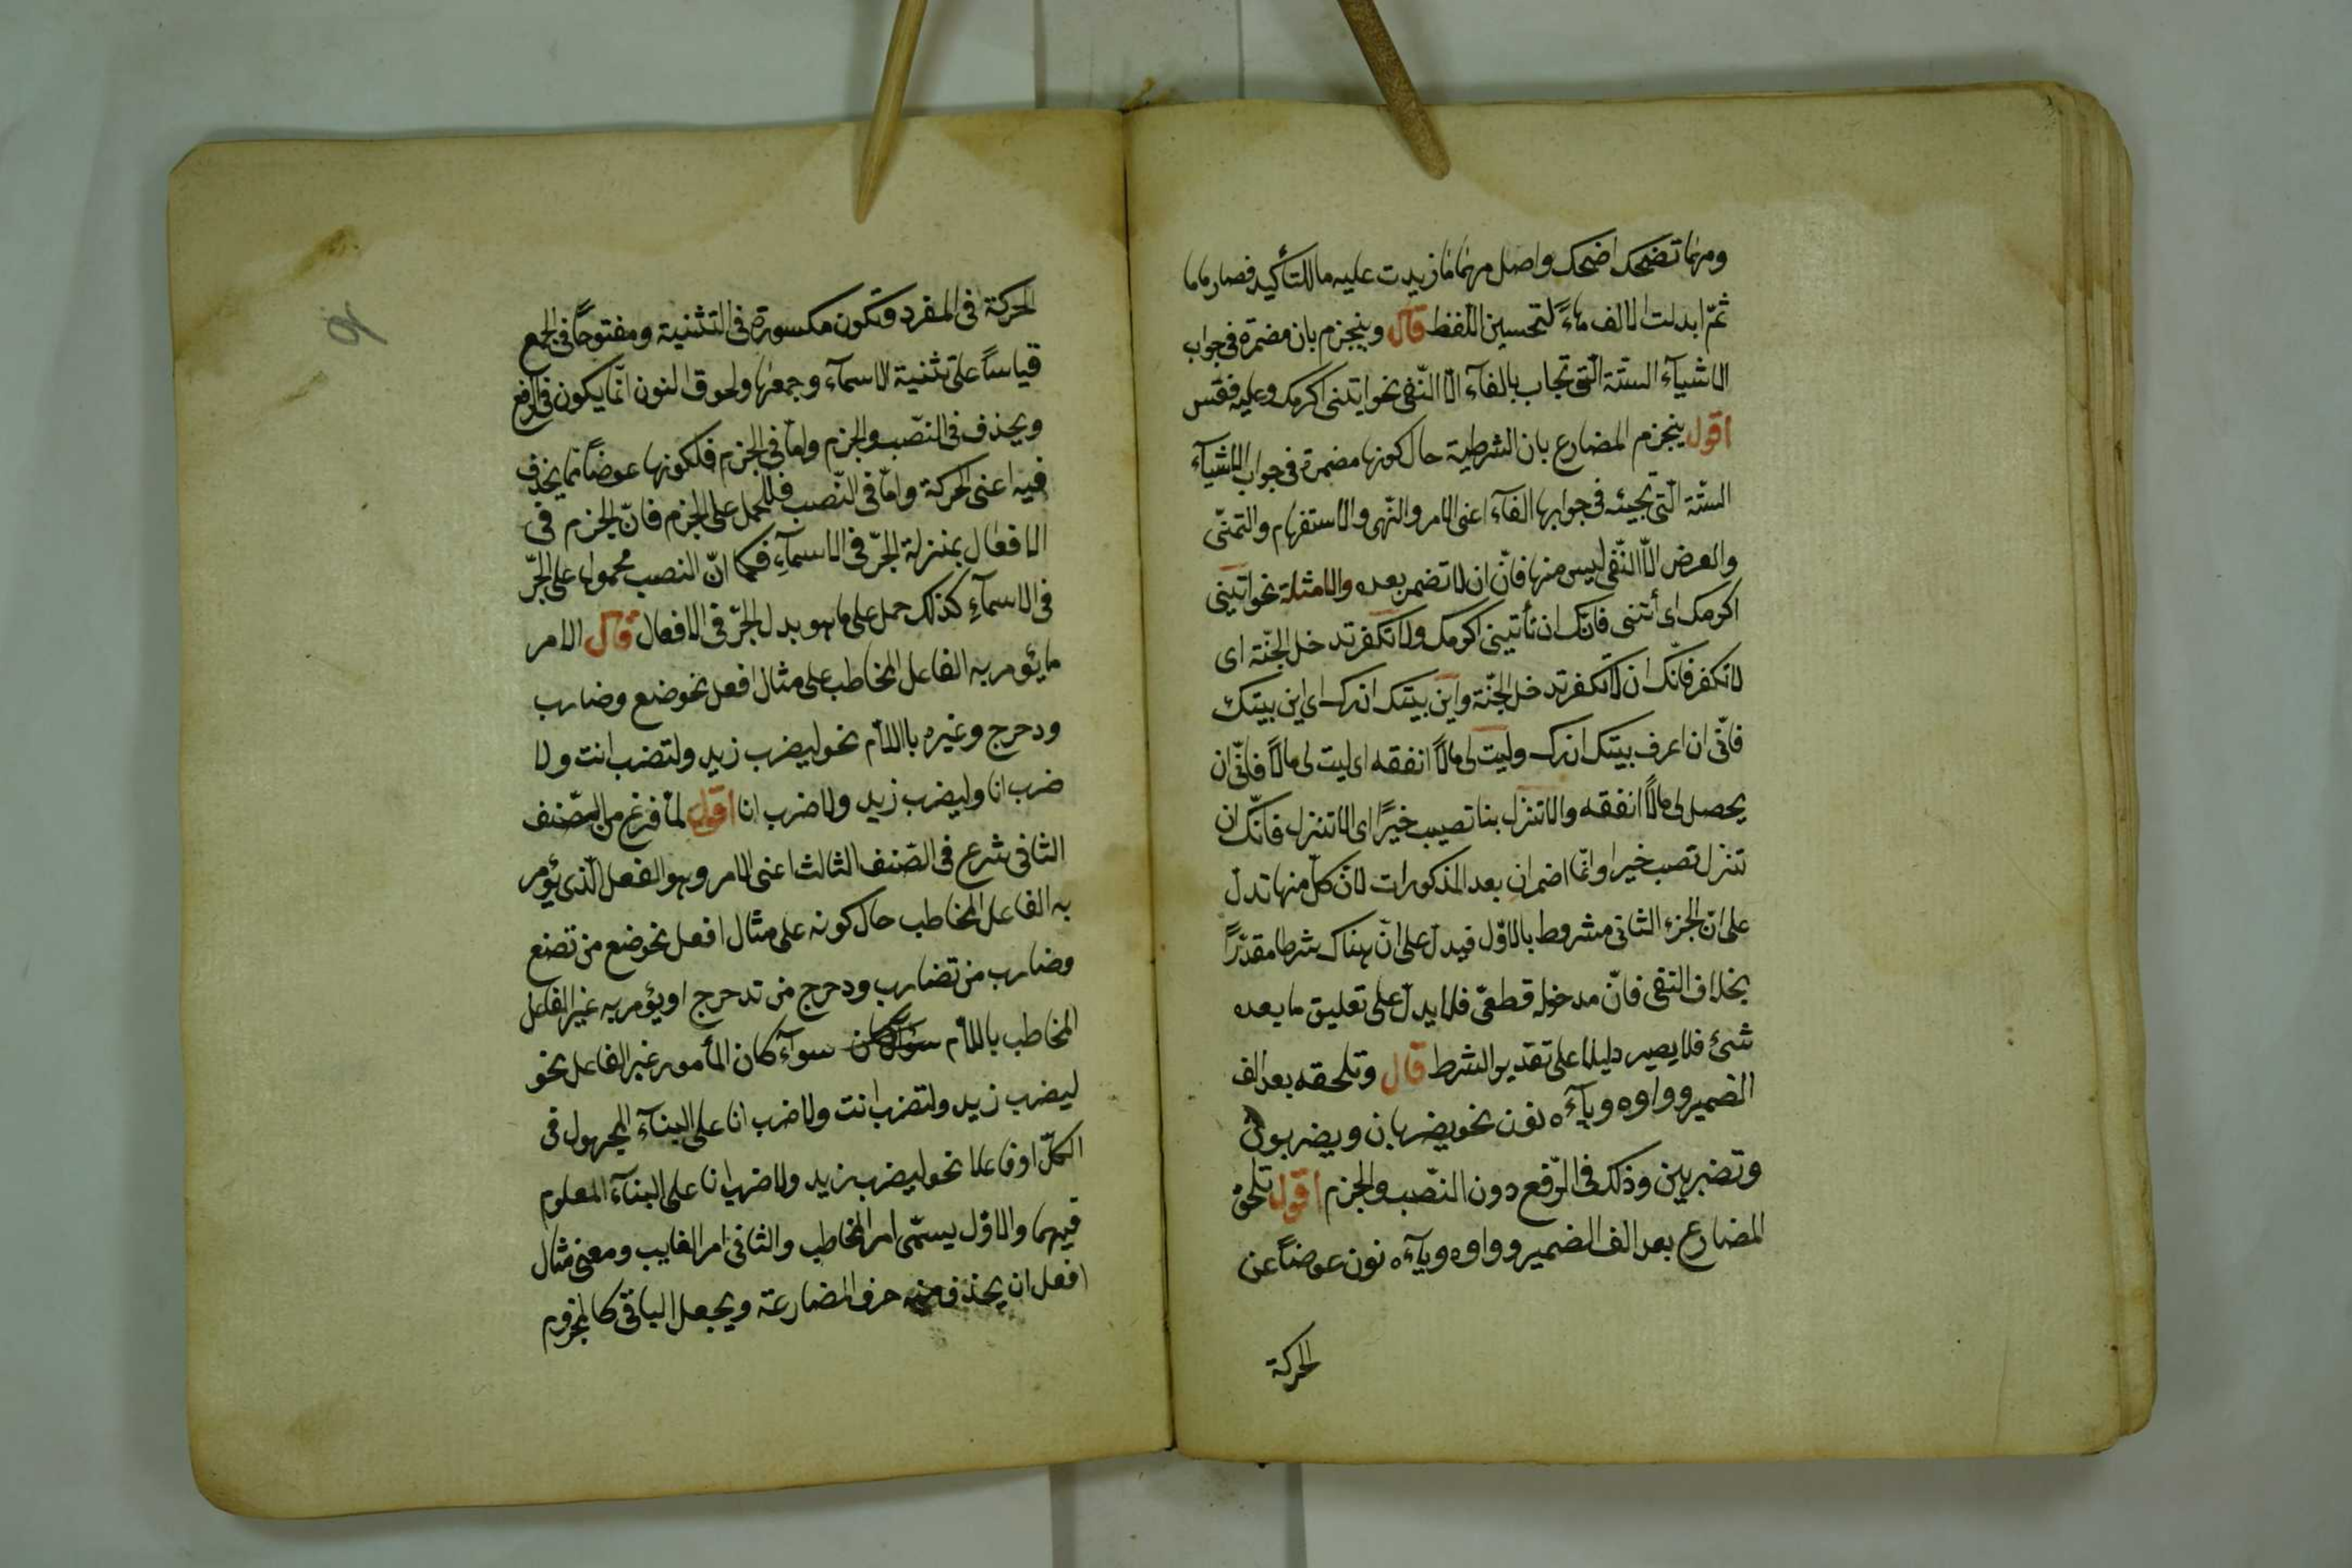 ومهما تضحك اضحك واصل مهما ما زيدت عليه ما للتأكيد فصار ماما
ثمّ ابدلت الالف هاءً لتحسين اللّفظ قال وينجزم بان مضمرة فى جواب
الاشيآء الستّة الّتى تجاب بالفآء الّا النّفى نحو ايتنى اكرمك وعليه فقس
اقول ينجزم المضارع بان الشرطية حال كونها مضمرة فى جواب الاشيآء
الستّة الّتى تجيئ فى جوابها الفآء اعنى الامر والنّهى والاستفهام والتمنّى
والعرض الّا النّفى ليس منها فانّ ان لا تضمر بعده والامثلة نحو اتينى
اكرمك اى أتنى فانّك ان تأتينى اكرمك ولا تكفر تدخل الجنّة اى
لا تكفر فانّك ان لا تكفر تدخل الجنّة واين بيتك ازرك اى اين بيتك
فانّى ان اعرف بيتك ازرك وليت لى مالاً انفقه اى ليت لى مالاً فانّى ان
يحصل لى مالاً انفقه والا تنزل بنا تصيب خيرًا اى الا تنزل فانّك ان
تنزل تصب خيرا وانّما اضمر ان بعد المذكورات لانّ كلّ منها تدلّ
على انّ الجزء الثانى مشروط بالاوّل فيدلّ على انّ هناك شرطا مقدّرًا
بخلاف النفى فانّ مدخوله قطعىّ فلا يدلّ على تعليق ما بعده
شئ فلا يصير دليلا على تقدير الشرط قال وتلحقه بعد الف
الضمير وواوه ويآءه نون نحو يضربان ويضربون
وتضربين وذلك فى الرّفع دون النّصب والجزم اقول تلحق
المضارع بعد الف الضمير وواوه ويآءه نون عوضاً عن
الحركة
الحركة فى المفرد وتكون مكسورة فى التثنية ومفتوحاً فى الجمع
قياساً على تثنية الاسمآء وجمعها ولحوق النون انّما يكون فى الرفع
ويحذف فى النّصب والجزم وامّا فى الجزم فلكونها عوضاً عما يحذف
فيه اعنى الحركة وامّا فى النّصب فللحمل على الجزم فانّ الجزم فى
الافعال بمنزلة الجرّ فى الاسمآءِ فكما انّ النصب محمولا على الجرّ
فى الاسمآءِ كذلك حمل على ما هو بدل الجرّ فى الافعال قال الامر
ما يؤمر به الفاعل المخاطب على مثال افعل نحو ضع وضارب
ودحرج وغيره باللاّم نحو ليضرب زيد ولتضرب انت ولا
ضرب انا وليضرب زيد ولاضرب انا اقول لمّا فرغ من الصّنف
الثانى شرع فى الصّنف الثالث اعنى الامر وهو الفعل الّذى يؤمر
به الفاعل المخاطب حال كونه على مثال افعل نحو ضع من تضع
وضارب من تضارب ودحرج من تدحرج او يؤمر به غير الفاعل
المخاطب باللاّم سوآء كان المأمور غير الفاعل نحو
ليضرب زيد ولتضرب انت ولاضرب انا على البنآء المجهول فى
الكلّ او فاعلا نحو ليضرب زيد ولاضرب انا على البنآء المعلوم
فيهما والاوّل يسمّى امر المخاطب والثانى امر الغايب ومعنى مثال
افعل ان يحذف منه حرف المضارعة ويجعل الباقى كالمجزوم